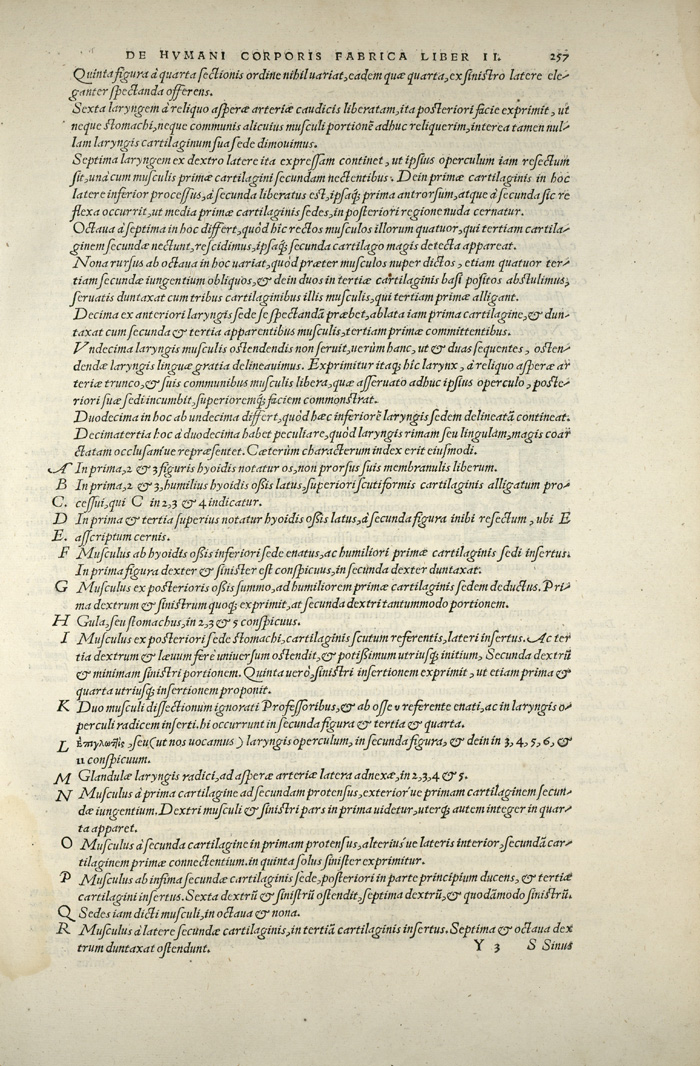 DE HVMANI CORPORIS FABRICA LIBER II. 257
Quinta figura à quarta sectionis ordine nihil uariat, eadem quæ quarta, ex sinistro latere ele-
ganter spectanda offerens.
Sexta laryngem à reliquo asperæ arteriæ caudicis liberatam, ita posteriori facie exprimit, ut
neque stomachi, neque communis alicuius musculi portionē adhuc reliquerim, interea tamen nul-
lam laryngis cartilaginum sua sede dimouimus.
Septima laryngem ex dextro latere ita expressam continet, ut ipsius operculum iam resectum
sit, unà cum musculis primæ cartilagini secundam nectentibus. Dein primæ cartilaginis in hoc
latere inferior processus, à secunda liberatus est, ipsaq́; prima antrorsum, atque à secunda sic re
flexa occurrit, ut media primæ cartilaginis sedes, in posteriori regione nuda cernatur.
Octaua à septima in hoc differt, quòd hîc rectos musculos illorum quatuor, qui tertiam cartila-
ginem secundæ nectunt, rescidimus, ipsaq́; secunda cartilago magis detecta appareat.
Nona rursus ab octaua in hoc uariat, quòd præter musculos nuper dictos, etiam quatuor ter-
tiam secundæ iungentium obliquos, & dein duos in tertiæ cartilaginis basi positos abstulimus,
seruatis duntaxat cum tribus cartilaginibus illis musculis, qui tertiam primæ alligant.
Decima ex anteriori laryngis sede se spectandā præbet, ablata iam prima cartilagine, & dun-
taxat cum secunda & tertia apparentibus musculis, tertiam primæ committentibus.
Vndecima laryngis musculis ostendendis non seruit, uerùm hanc, ut & duas sequentes, osten-
dendæ laryngis linguæ gratia delineauimus. Exprimitur itaq; hîc larynx, à reliquo asperæ ar
teriæ trunco, & suis communibus musculis libera, quæ asseruato adhuc ipsius operculo, poste-
riori suæ sedi incumbit, superioremq́; faciem commonstrat.
Duodecima in hoc ab undecima differt, quòd hæc inferiorē laryngis sedem delineatā contineat.
Decimatertia hoc à duodecima habet peculiare, quòd laryngis rimam seu lingulam, magis coar
ctatam occlusam'ue repræsentet. Cæterùm characterum index erit eiusmodi.
A In prima, 2 & 3 figuris hyoidis notatur os, non prorsus suis membranulis liberum.
B In prima, 2 & 3, humilius hyoidis ossis latus, superiori scutiformis cartilaginis alligatum pro-
C. cessui, qui C in 2, 3 & 4 indicatur.
D In prima & tertia superius notatur hyoidis ossis latus, à secunda figura inibi resectum, ubi E
E. asscriptum cernis.
F Musculus ab hyoidis ossis inferiori sede enatus, ac humiliori primæ cartilaginis sedi insertus.
In prima figura dexter & sinister est conspicuus, in secunda dexter duntaxat.
G Musculus ex posterioris ossis summo, ad humiliorem primæ cartilaginis sedem deductus. Pri-
ma dextrum & sinistrum quoq; exprimit, at secunda dextri tantummodo portionem.
H Gula, seu stomachus, in 2, 3 & 5 conspicuus.
I Musculus ex posteriori sede stomachi, cartilaginis scutum referentis, lateri insertus. Ac ter
tia dextrum & læuum ferè uniuersum ostendit, & potissimum utriusq; initium, Secunda dextrū
& minimam sinistri portionem. Quinta uerò, sinistri insertionem exprimit, ut etiam prima &
quarta utriusq; insertionem proponit.
K Duo musculi dissectionum ignorati Professoribus, & ab osse υ referente enati, ac in laryngis o-
perculi radicem inserti. hi occurrunt in secunda figura & tertia & quarta.
L Ἐπιγλωττὶς, seu (ut nos uocamus) laryngis operculum, in secunda figura, & dein in 3, 4, 5, 6, &
11 conspicuum.
M Glandulæ laryngis radici, ad asperæ arteriæ latera adnexæ, in 2, 3, 4 & 5.
N Musculus à prima cartilagine ad secundam protensus, exterior'ue primam cartilaginem secun-
dæ iungentium. Dextri musculi & sinistri pars in prima uidetur, uterq; autem integer in quar-
ta apparet.
O Musculus à secunda cartilagine in primam protensus, alterius'ue lateris interior, secundā car-
tilaginem primæ connectentium. in quinta solus sinister exprimitur.
P Musculus ab infima secundæ cartilaginis sede, posteriori in parte principium ducens, & tertiæ
cartilagini insertus. Sexta dextrū & sinistrū ostendit, septima dextrū, & quodāmodo sinistrū.
Q Sedes iam dicti musculi, in octaua & nona.
R Musculus à latere secundæ cartilaginis, in tertiā cartilaginis insertus. Septima & octaua dex
trum duntaxat ostendunt. Y 3 S Sinus